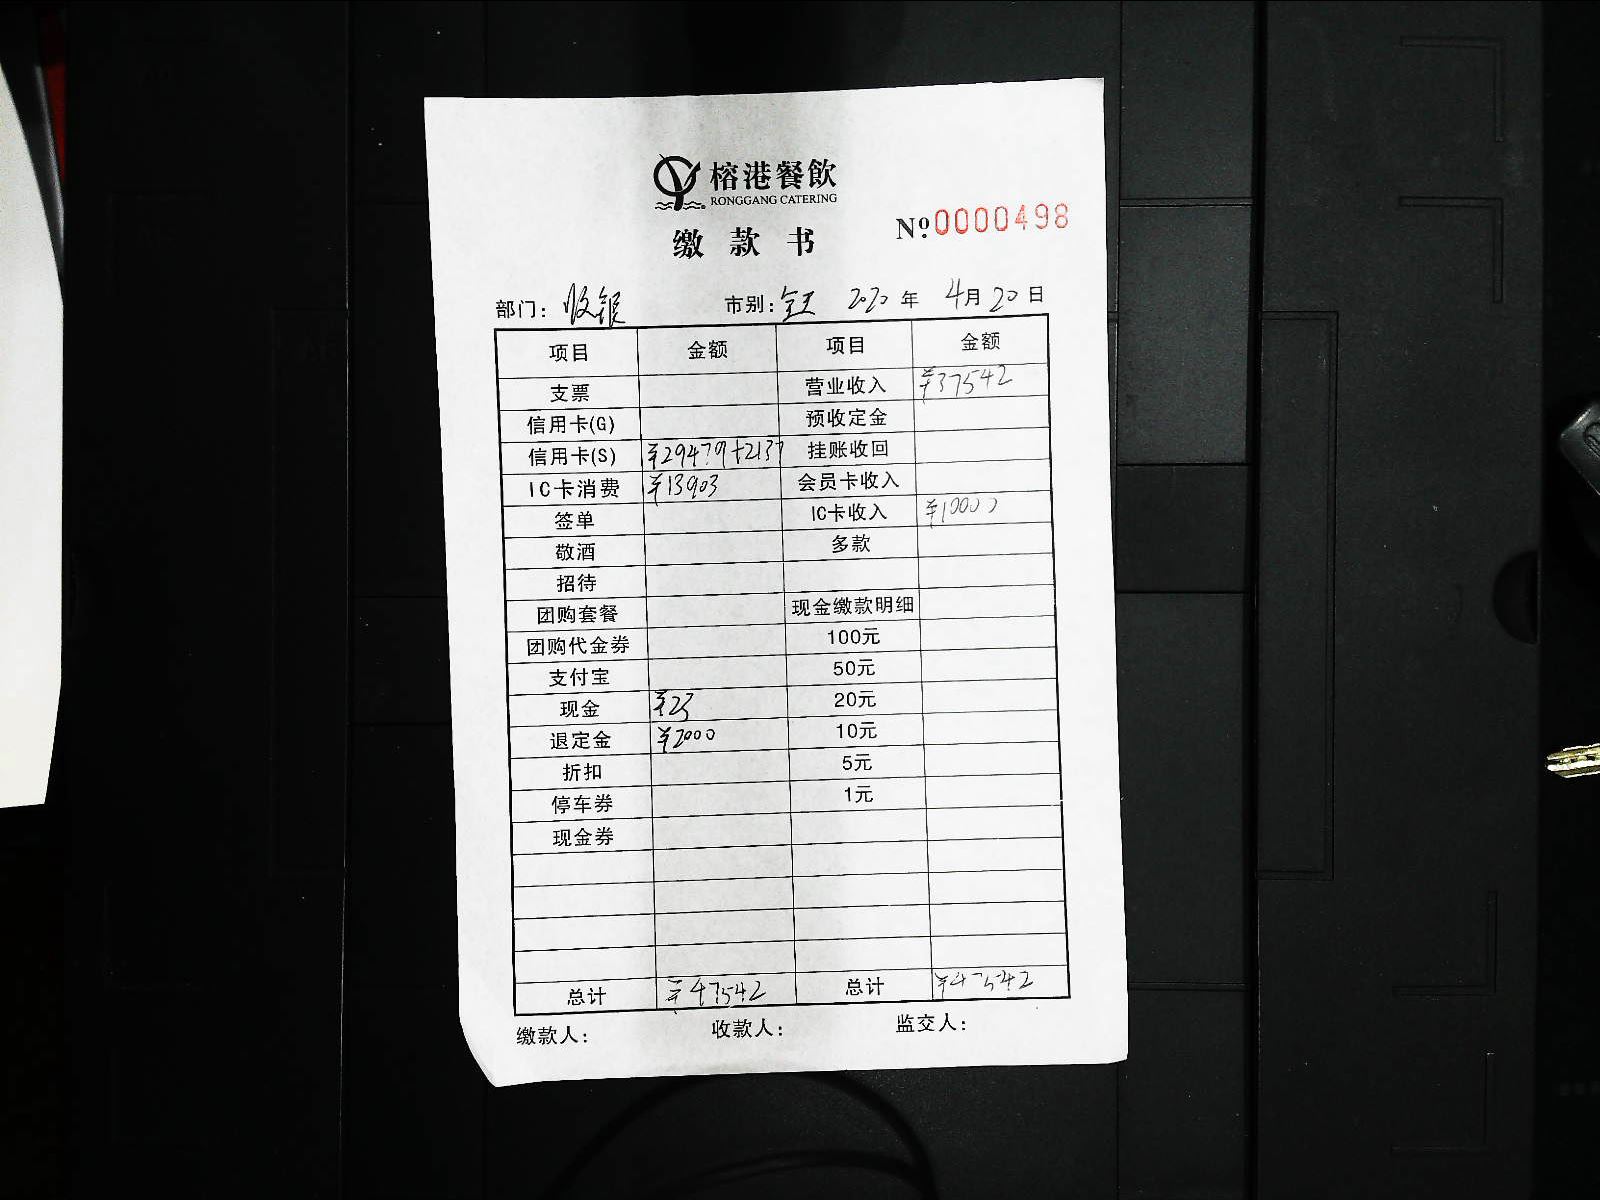 榕港餐飲
RONGGANG CATERING
缴款书
№0000498
部门: 收银 市别: 全天 2020年 4月20日
项目 金额 项目 金额
支票 营业收入 ¥37542
信用卡(G) 预收定金
信用卡(S) ¥29479+2137 挂账收回
IC卡消费 ¥13903 会员卡收入
签单 IC卡收入 ¥10000
敬酒 多款
招待
团购套餐 现金缴款明细
团购代金券 100元
支付宝 50元
现金 ¥23 20元
退定金 ¥2000 10元
折扣 5元
停车券 1元
现金券
总计 ¥47542 总计 ¥47542
缴款人: 收款人: 监交人: